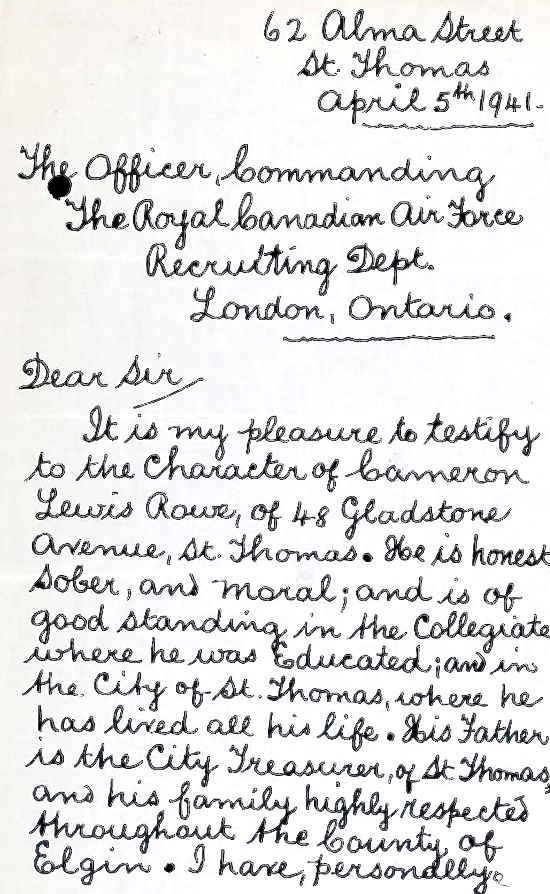 62 Alma Street
St. Thomas
April 5th 1941-
The Officer, Commanding
The Royal Canadian Air Force
Recruiting Dept.
London, Ontario.
Dear Sir
It is my pleasure to testify
to the Character of Cameron
Lewis Rowe, of 48 Gladstone
Avenue, St. Thomas. He is honest
Sober, and moral; and is of
good standing in the Collegiate
where he was Educated; and in
the City of St. Thomas, where he
has lived all his life. His Father
is the City Treasurer, of St Thomas,
and his family highly respected
throughout the County of
Elgin. I have, personally